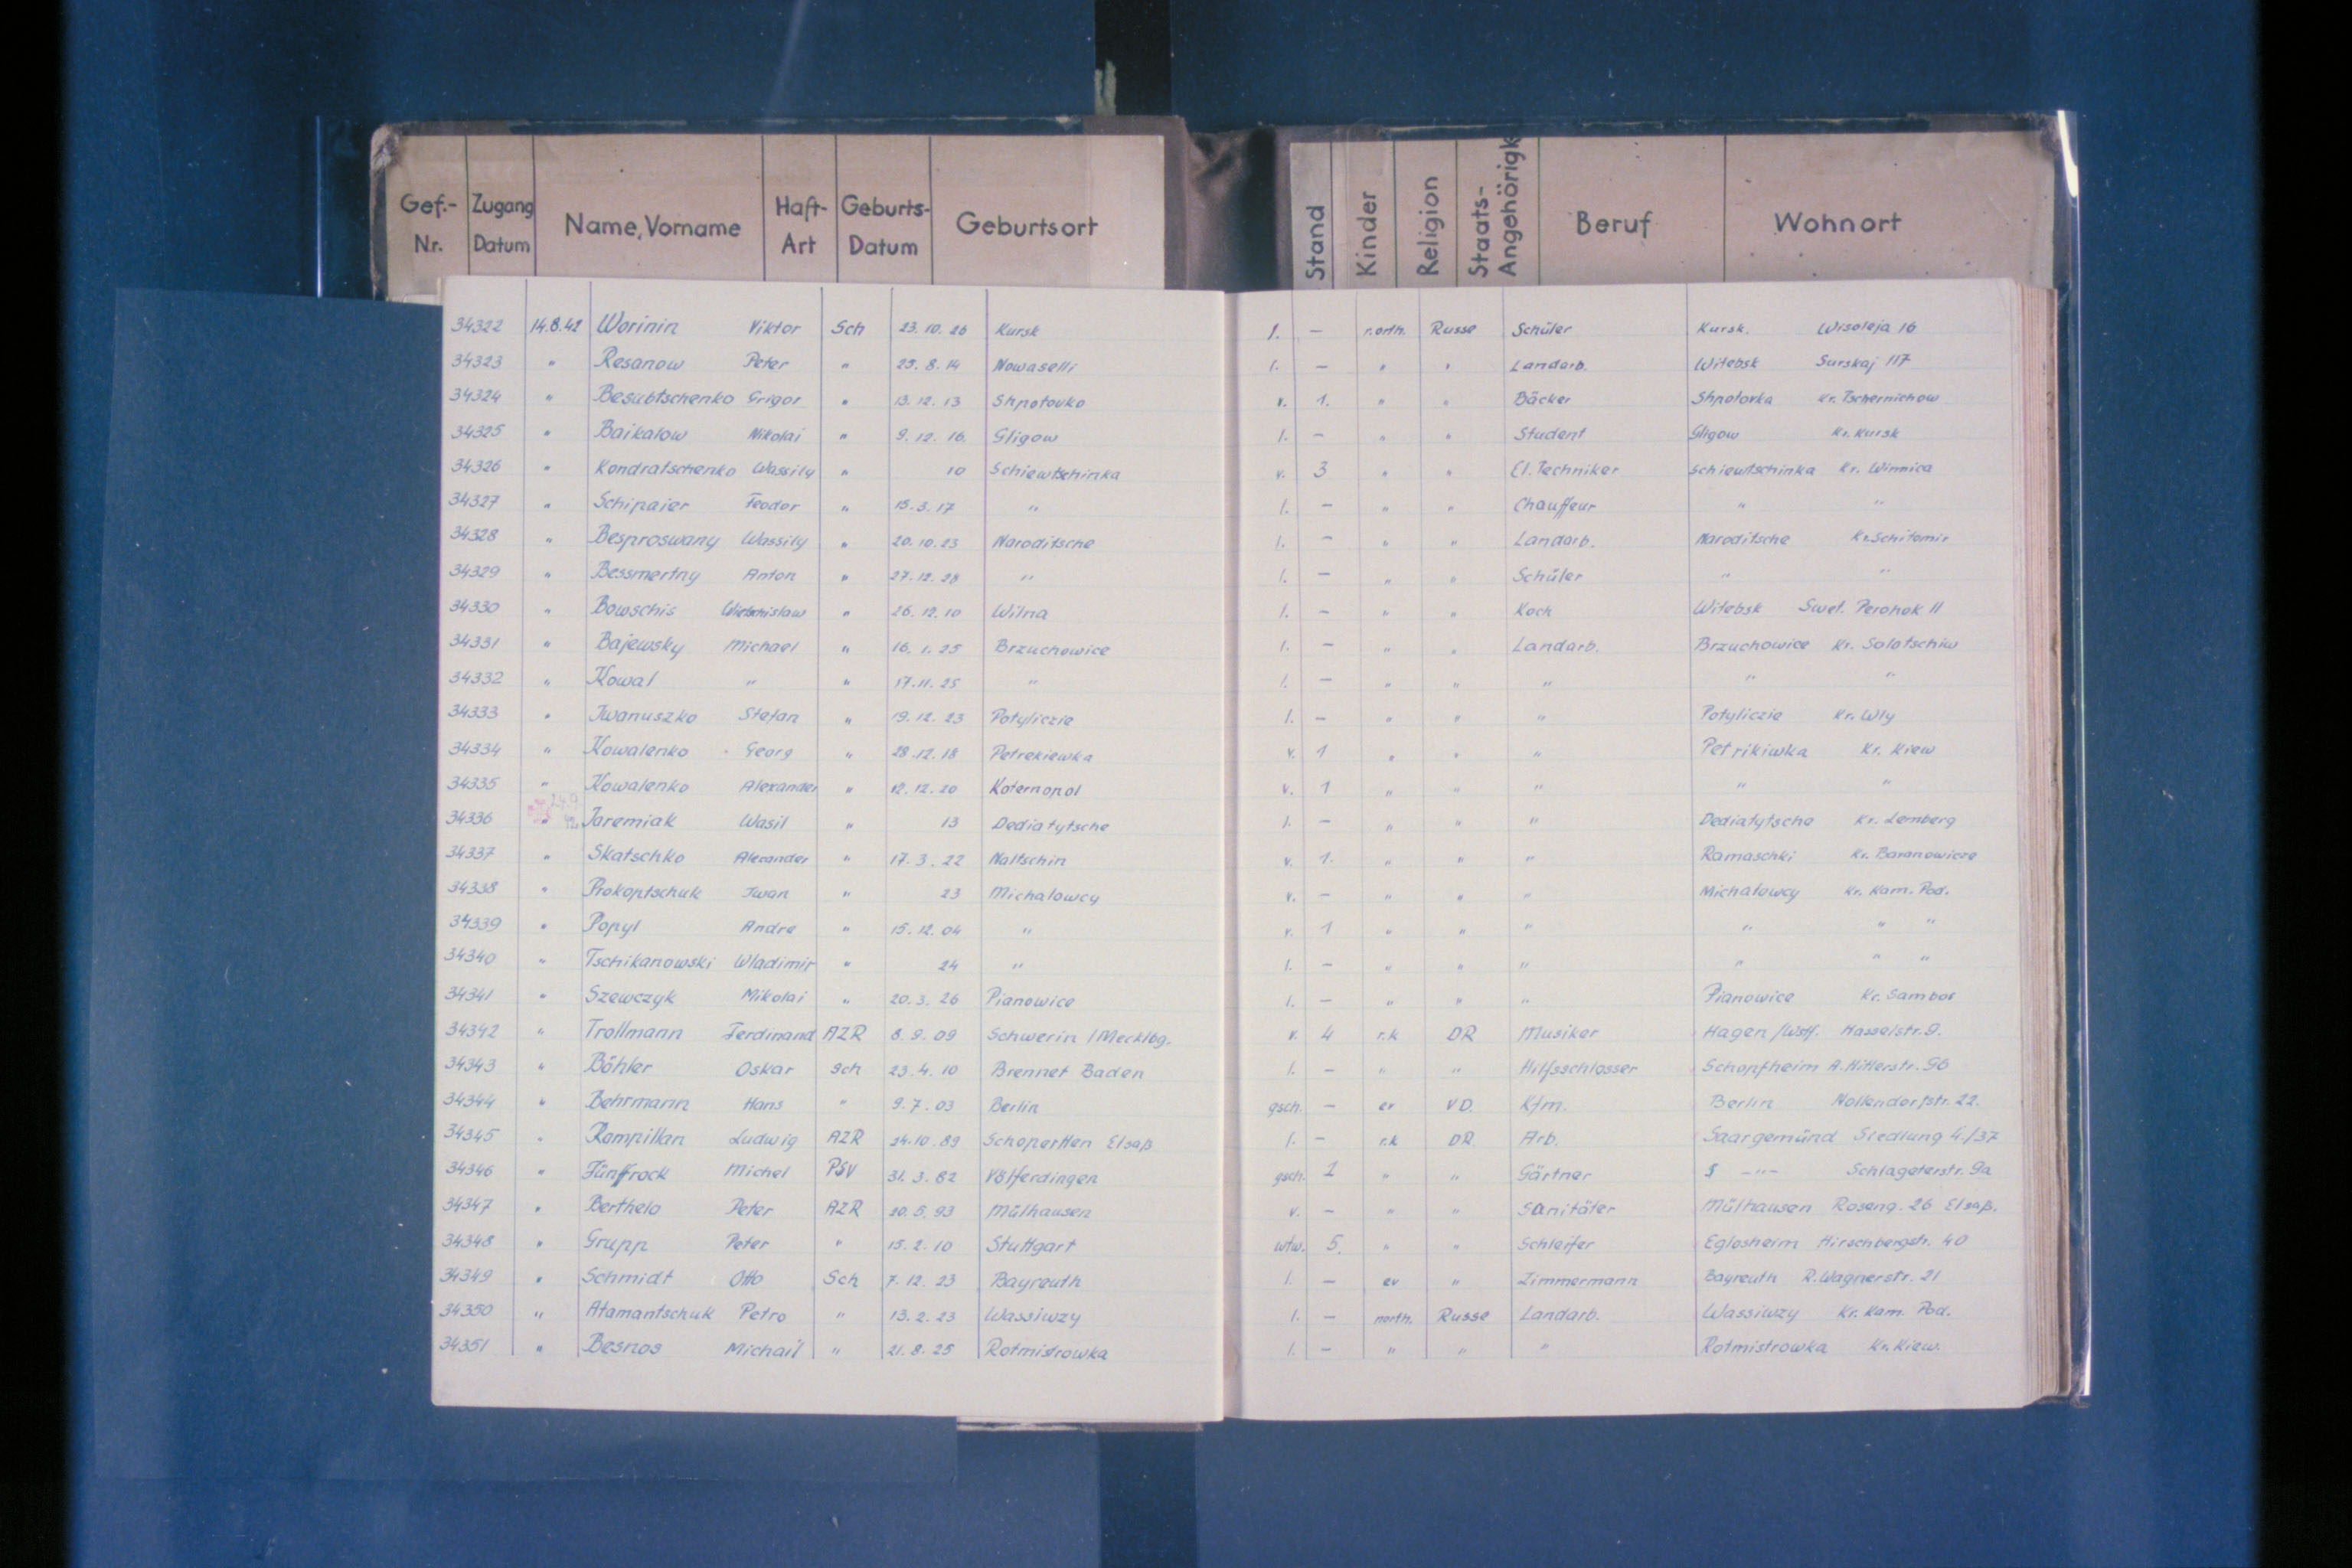 Gef.- Nr. Zugang Datum Name, Vorname Haft- Art Geburts- Datum Geburtsort Stand Kinder Religion Staats- Angehörigk Beruf Wohnort
34322 14.8.42 Worinin Viktor Sch 23.10.26 Kursk l. — r.orth. Russe Schüler Kursk. Wisoleja 16
34323 " Resanow Peter " 25.8.14 Nowaselli l. — " " Landarb. Witebsk Surskaj 117
34324 " Besubtschenko Grigor " 13.12.13 Shpotovko v. 1. " " Bäcker Shpotovka Kr. Tschernichow
34325 " Baikalow Nikolai " 9.12.16. Gligow l. — " " Student Gligow Kr. Kursk
34326 " Kondratschenko Wassily " 10 Schiewtschinka v. 3 " " El. Techniker Schiewtschinka Kr. Winnica
34327 " Schipaier Feodor " 15.3.17 " l. — " " Chauffeur " "
34328 " Besproswany Wassily " 20.10.23 Naroditsche l. — " " Landarb. Naroditsche Kr. Schitomir
34329 " Bessmertny Anton " 27.12.28 " l. — " " Schüler " "
34330 " Bowschis " 26.12.10 Wilna l. — " " Koch Witebsk Swet. Perohok 11
34331 " Bajewsky Michael " 16.1.25 Brzuchowice l. — " " Landarb. Brzuchowice Kr. Solotschiw
34332 " Kowal " " 17.11.25 " l. — " " " " "
34333 " Jwanuszko Stefan " 19.12.23 Potyliczie l. — " " " Potyliczie Kr. Wly
34334 " Kowalenko Georg " 28.12.18 Petrekiewka v. 1 " " " Petrikiwka Kr. Kiew
34335 " Kowalenko Alexander " 12.12.20 Koternopol v. 1 " " " " "
34336 " Jaremiak Wasil " 13 Dediatytsche l. — " " " Dediatytsche Kr. Lemberg
34337 " Skatschko Alexander " 17.3.22 Naltschin v. 1. " " " Ramaschki Kr. Baranowicze
34338 " Prokoptschuk Jwan " 23 Michalowcy v. — " " " Michalowcy Kr. Kam. Pod.
34339 " Popyl Andre " 15.12.04 " v. 1 " " " " " "
34340 " Tschikanowski Wladimir " 24 " l. — " " " " " "
34341 " Szewczyk Mikolai " 20.3.26 Pianowice l. — " " " Pianowice Kr. Sambor
34342 " Trollmann Ferdinand AZR 8.9.09 Schwerin / Mecklbg. v. 4 r.k DR Musiker Hagen / Wstf. Hasselstr. 9.
34343 " Böhler Oskar Sch 23.4.10 Brennet Baden l. — " " Hilfsschlosser Schopfheim A. Hitlerstr. 96
34344 " Behrmann Hans " 9.7.03 Berlin gsch. — ev VD. Kfm. Berlin Nollendorfstr. 22.
34345 " Rompillan Ludwig AZR 24.10.89 Schoperten Elsaß l. — r.k DR Arb. Saargemünd Siedlung 4./37
34346 " Fünffrock Michel PSV 31.3.82 Völferdingen gsch. 1 " " Gärtner -"- Schlageterstr. 9a
34347 " Berthelo Peter AZR 20.5.93 Mülhausen v. — " " Sanitäter Mülhausen Roseng. 26 Elsaß.
34348 " Grupp Peter " 15.2.10 Stuttgart wtw. 5. " " Schleifer Eglosheim Hirschbergstr. 40
34349 " Schmidt Otto Sch 7.12.23 Bayreuth l. — ev " Zimmermann Bayreuth R. Wagnerstr. 21
34350 " Atamantschuk Petro " 13.2.23 Wassiwzy l. — Russe Landarb. Wassiwzy Kr. Kam. Pod.
34351 " Besnos Michail " 21.8.25 Rotmistrowka l. — " " " Rotmistrowka Kr. Kiew.